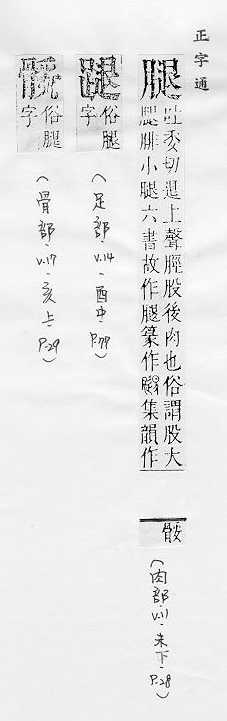 正字通
腿
吐委切退上聲脛股後肉也俗謂股大
腿腓小腿六書故作腿篆作𩪋集韻作
骽
(肉部.V.11.未下.P.28)
俗腿
字
(足部.V.14.酉中.P.79)
俗腿
字
(骨部.V.17.亥上.P.29)